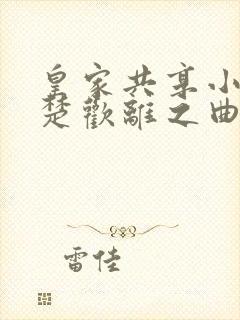 皇家共享小
楚歡離之曲
雷佳